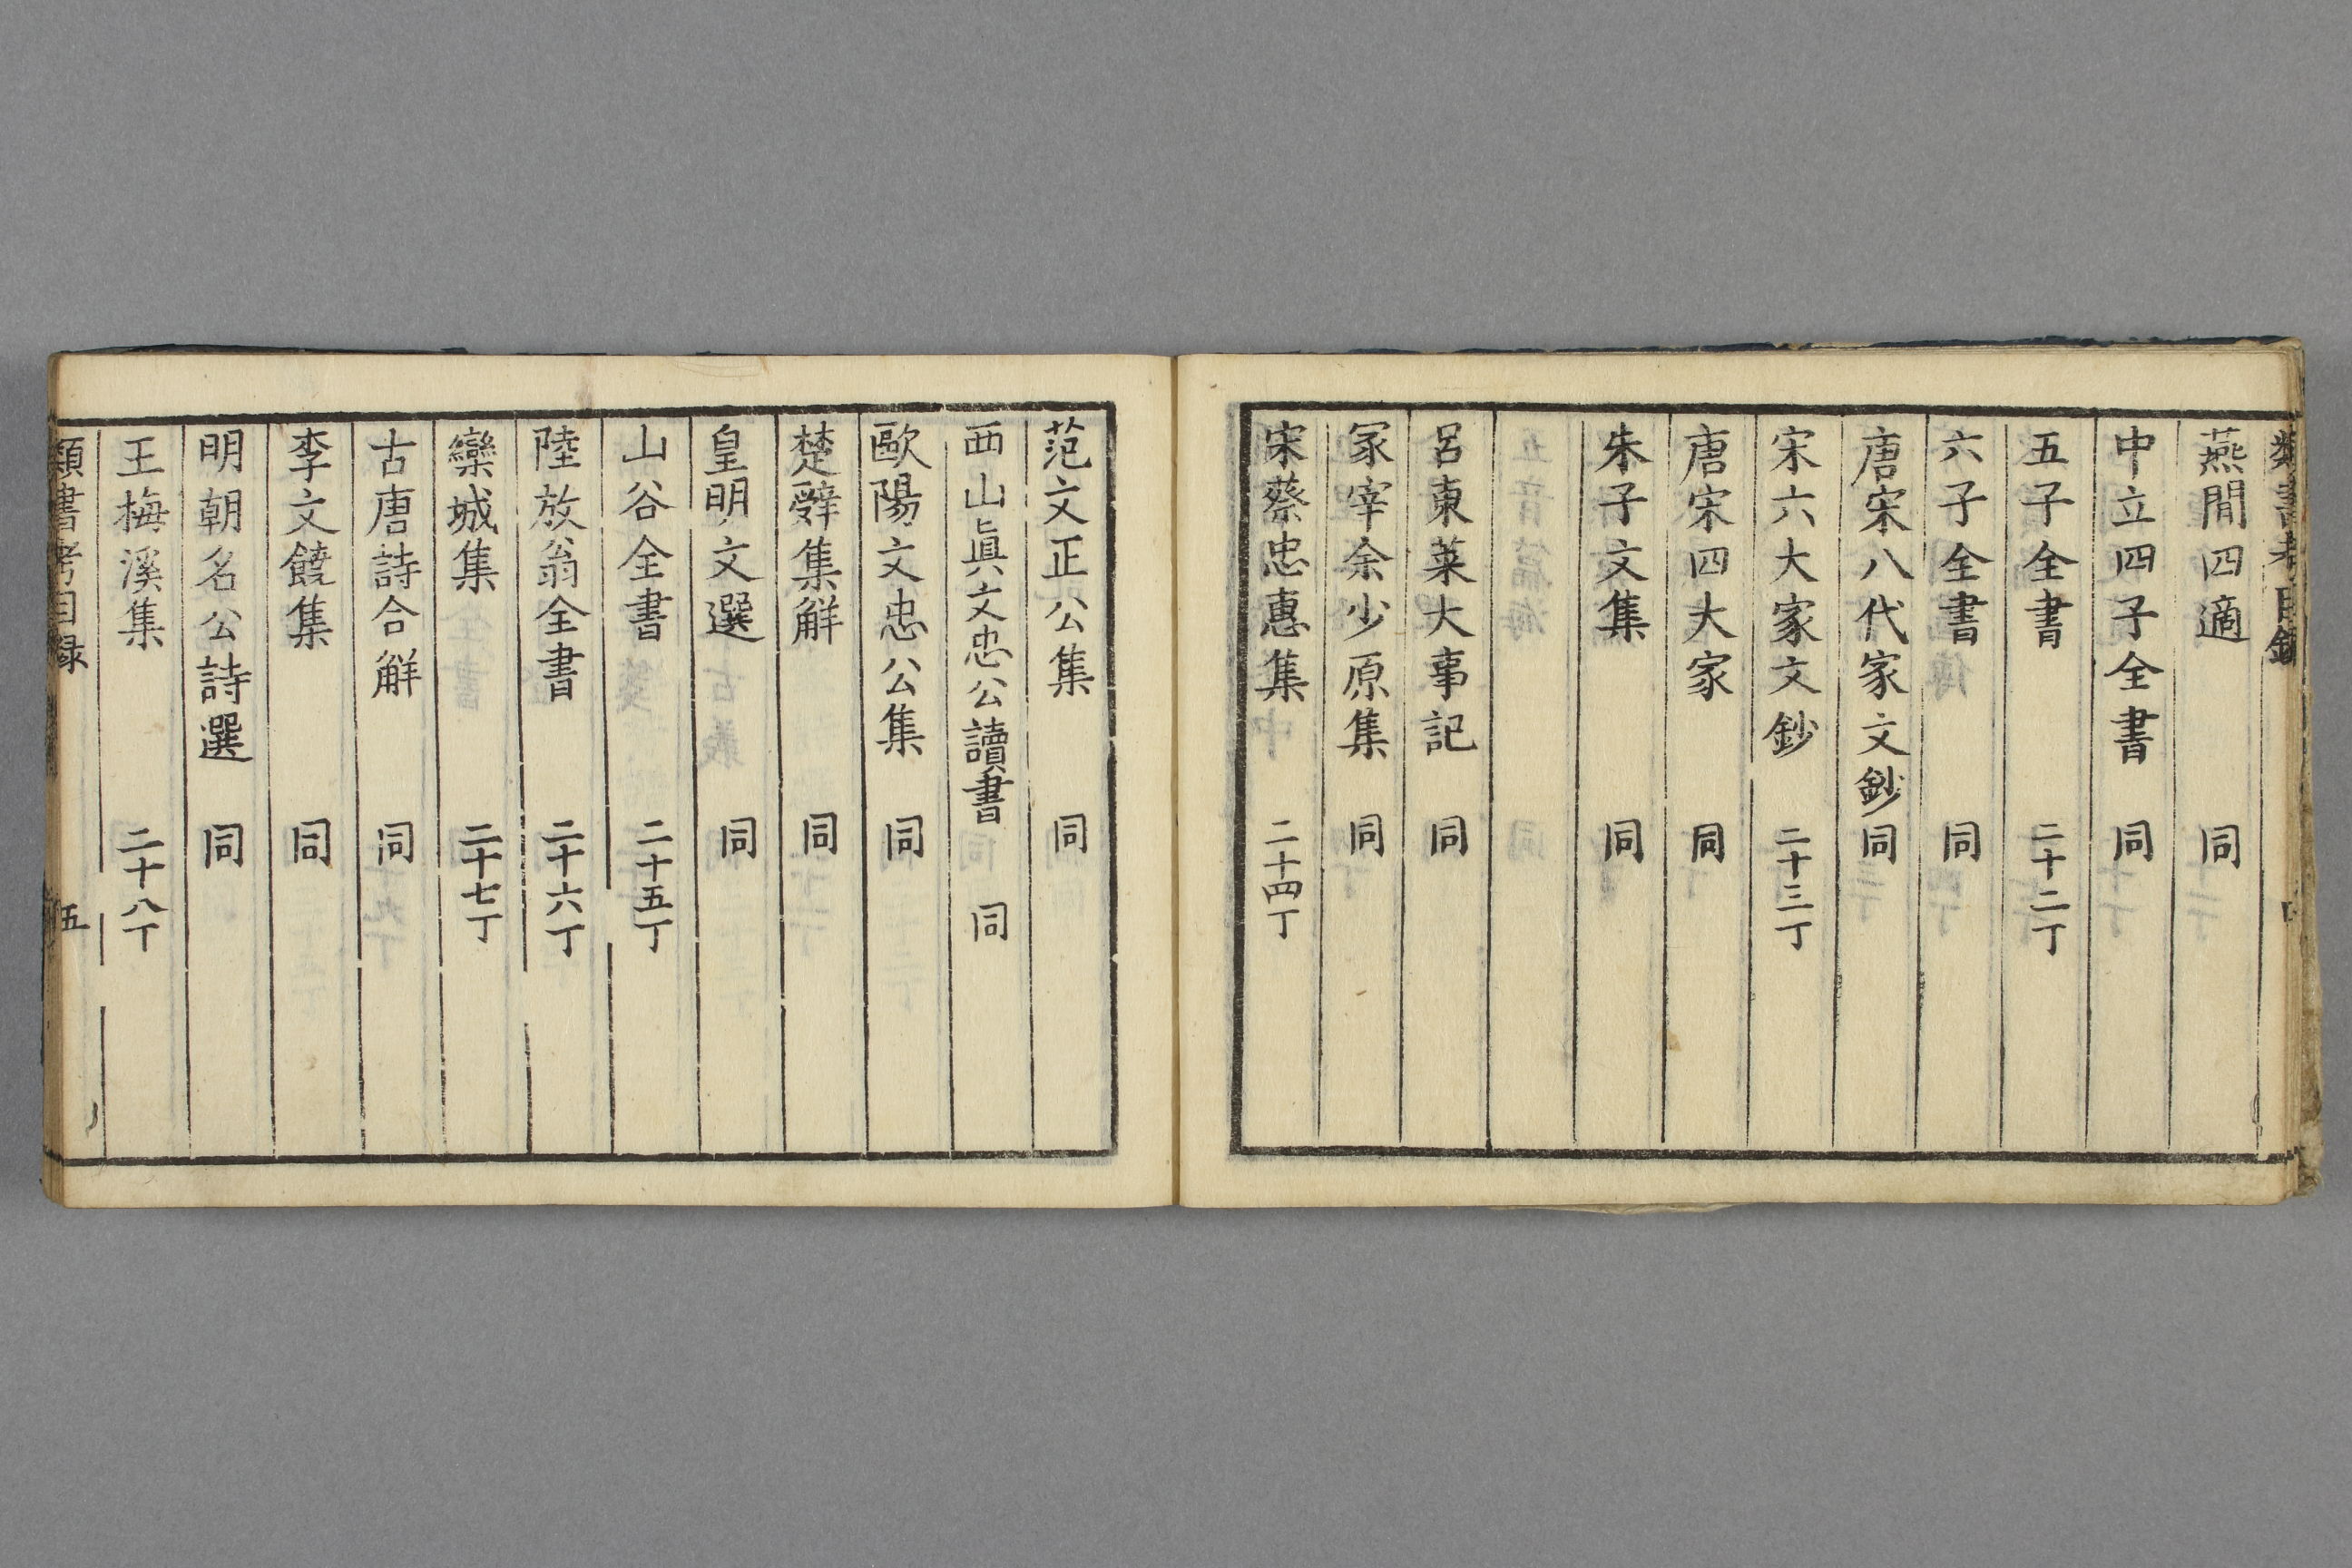 類書考目録
燕閒四適 同
中立四子全書 同
五子全書 二十二丁
六子全書 同
唐宋八代家文鈔 同
宋六大家文鈔 二十三丁
唐宋四大家 同
朱子文集 同
呂東萊大事記 同
冢宰余少原集 同
宋蔡忠惠集 二十四丁
范文正公集 同
西山眞文忠公讀書 同
歐陽文忠公集 同
楚辭集解 同
皇明文選 同
山谷全書 二十五丁
陸放翁全書 二十六丁
欒城集 二十七丁
古唐詩合解 同
李文饒集 同
明朝名公詩選 同
王梅溪集 二十八丁
類書考目録 五